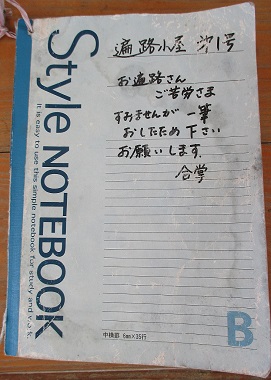 Style NOTEBOOK
It is easy to use this simple notebook for study and work.
遍路小屋 第1号
お遍路さん
ご苦労さま
すみませんが 一筆
おしたため下さい
お願いします。
合掌
中横罫 6mm×35行
B